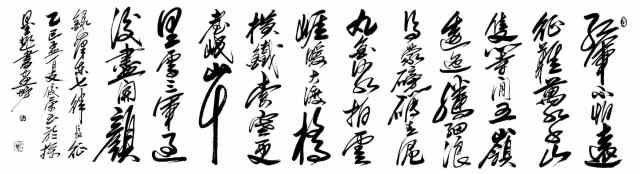 紅軍不怕遠
征難萬水千山
隻等閑五嶺
逶迤騰細浪
烏蒙磅礴走泥
丸金沙水拍雲
崖暖大渡橋
橫鐵索寒更
喜岷山千
里雪三軍過
後盡開顏
錄澤東七律長征
乙巳孟夏於
墨書